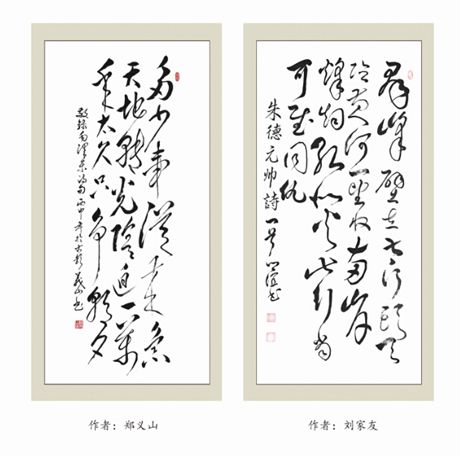 多少事從來急
天地轉光陰迫一萬
年太久只争朝夕
群峰壁立太行頭天
險黄河一望收两岸
烽烟红似火此行當
可慰同仇
朱德元帥詩一首
作者：郑义山
作者：刘家友